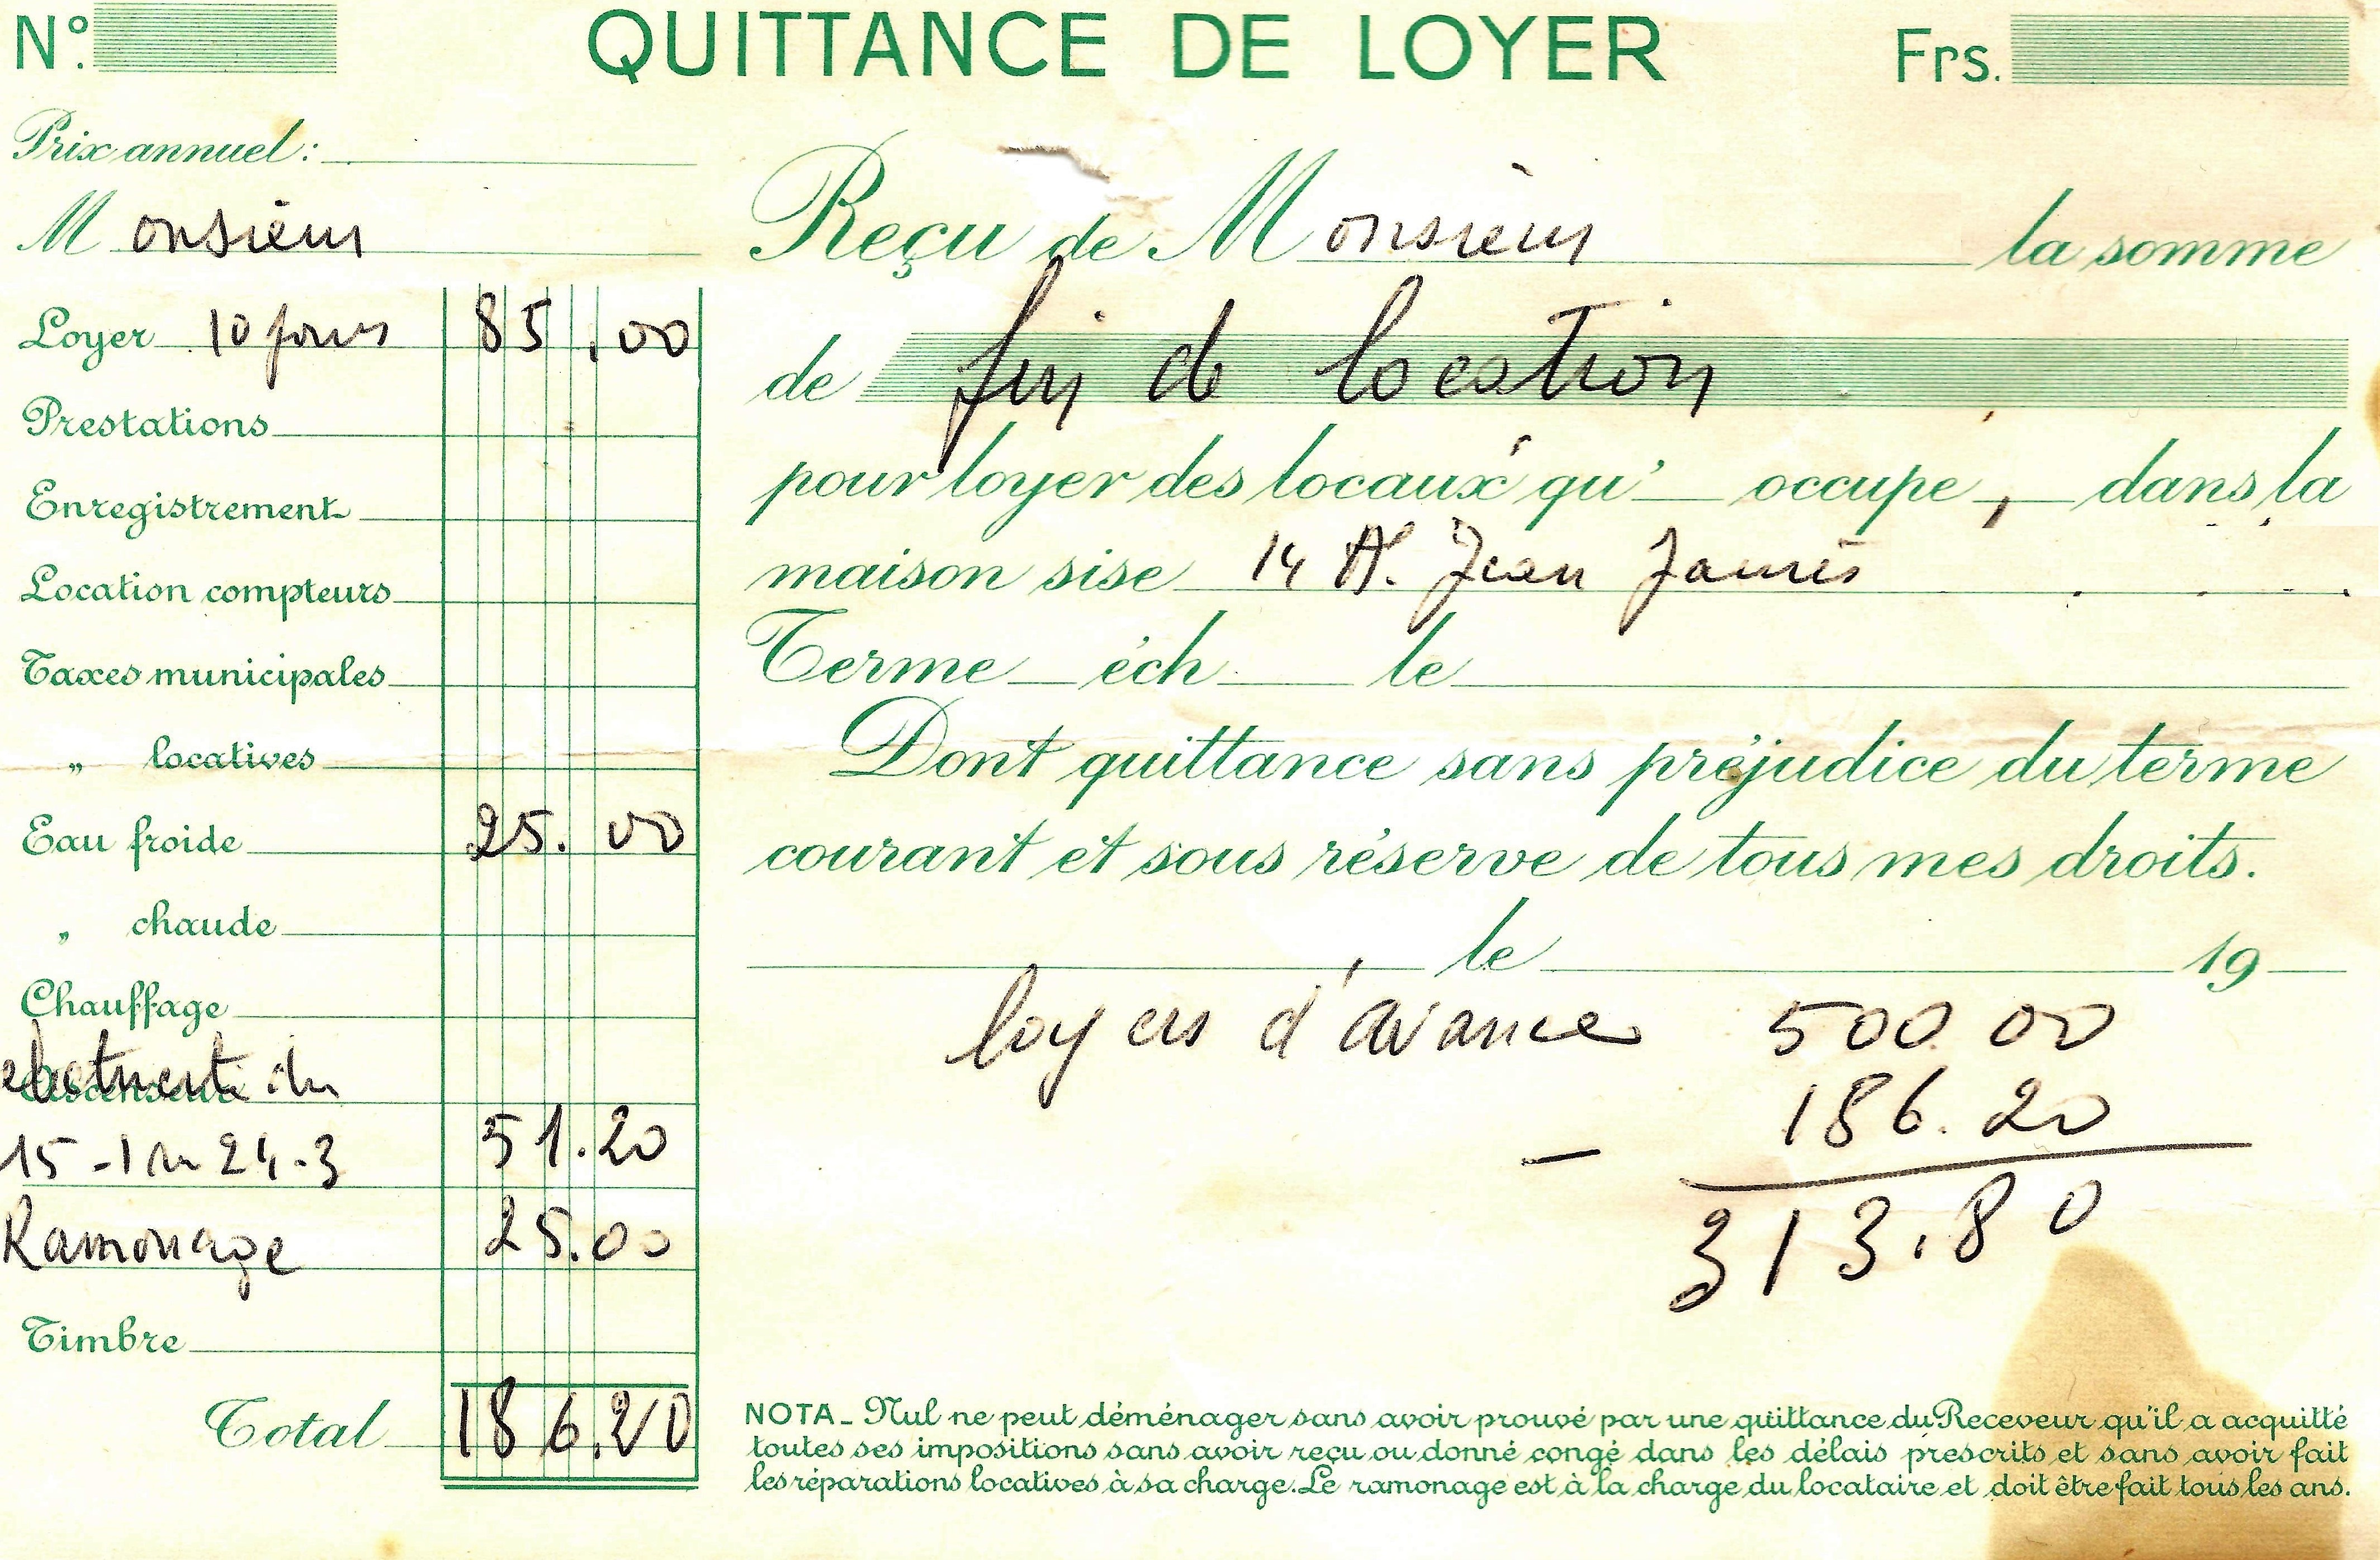 N° QUITTANCE DE LOYER Frs.
Prix annuel:
Monsieur
Loyer 10 jours 85,00
Prestations
Enregistrement
Location compteurs
Taxes municipales
„ locatives
Eau froide 25.00
„ chaude
Chauffage
Ascenseur
15-1 au 24-3 51.20
Ramonage 25.00
Timbre
Total 186.20
Reçu de Monsieur la somme
de fin de location
pour loyer des locaux qu' occupe, dans la
maison sise 14 Jean Jaurès
Terme éch le
Dont quittance sans préjudice du terme
courant et sous réserve de tous mes droits.
le 19
loyers d'avance 500.00
- 186.20
313.80
NOTA_ Nul ne peut déménager sans avoir prouvé par une quittance du Receveur qu'il a acquitté
toutes ses impositions sans avoir reçu ou donné congé dans les délais prescrits et sans avoir fait
les réparations locatives à sa charge. Le ramonage est à la charge du locataire et doit être fait tous les ans.